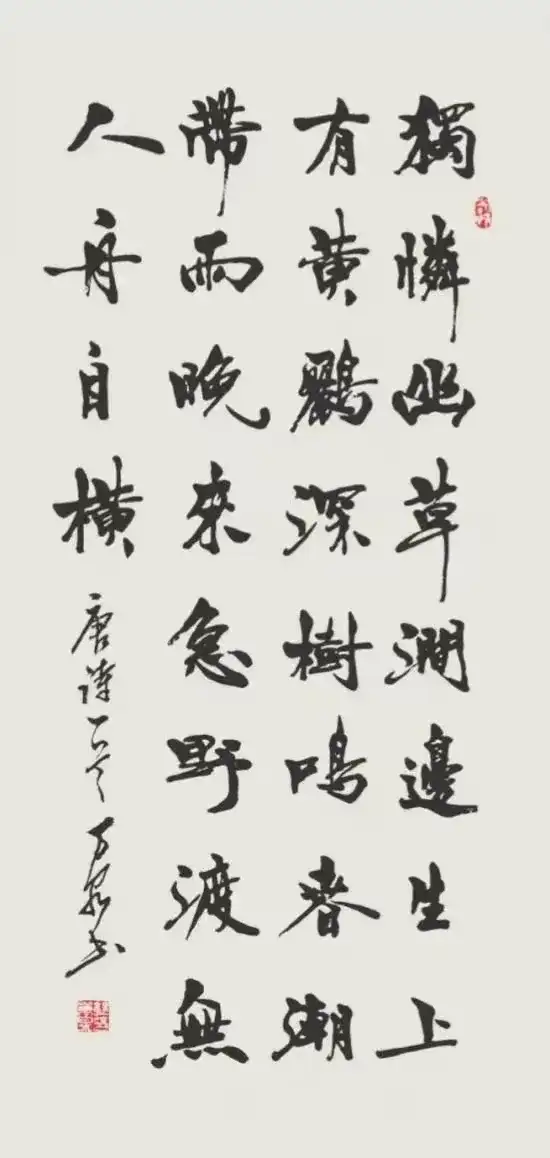 獨憐幽草澗邊生上
有黃鸝深樹鳴春潮
帶雨晚來急野渡無
人舟自橫
唐詩一首 万泉书